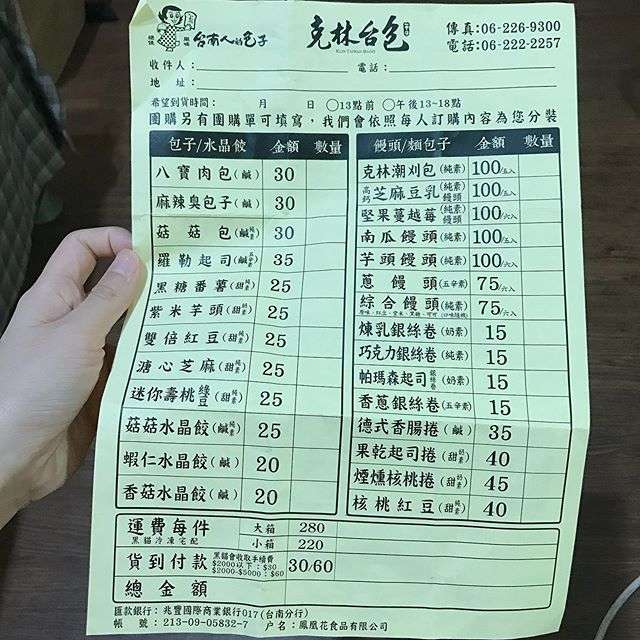 台南人的包子 克林台包 傳真:06-226-9300
KLIN TAIWAN BAOZI 電話:06-222-2257
收件人: 電話:
地 址:
希望到貨時間: 月 日 ○13點前 ○午後13~18點
團購另有團購單可填寫,我們會依照每人訂購內容為您分裝
包子/水晶餃 金額 數量 饅頭/麵包子 金額 數量
八寶肉包(鹹) 30
麻辣臭包子(鹹) 30
菇菇包(鹹純素) 30
羅勒起司(鹹) 35
黑糖番薯(甜純素) 25
紫米芋頭(甜純素) 25
雙倍紅豆(甜純素) 25
溏心芝麻(甜純素) 25
迷你壽桃綠豆(甜純素) 25
菇菇水晶餃(鹹純素) 25
蝦仁水晶餃(鹹) 20
香菇水晶餃(鹹) 20
克林潮刈包(純素) 100/五入
高鈣芝麻豆乳(純素饅頭) 100/五入
堅果蔓越莓(純素饅頭) 100/六入
南瓜饅頭(純素) 100/五入
芋頭饅頭(純素) 100/六入
蔥饅頭(五辛素) 75/六入
綜合饅頭(純素) 75/六入
煉乳銀絲卷(奶素) 15
巧克力銀絲卷(奶素) 15
帕瑪森起司銀絲卷(奶素) 15
香蔥銀絲卷(五辛素) 15
德式香腸捲(鹹) 35
果乾起司捲(甜奶素) 40
煙燻核桃捲(甜) 45
核桃紅豆(甜純素) 40
運費每件 大箱 280
黑貓冷凍宅配 小箱 220
貨到付款 黑貓會收取手續費 $2000以下:$30 $2000-$5000:$60 30/60
總金額
匯款銀行:兆豐國際商業銀行017(台南分行)
帳 號:213-09-05832-7 戶名:鳳凰花食品有限公司